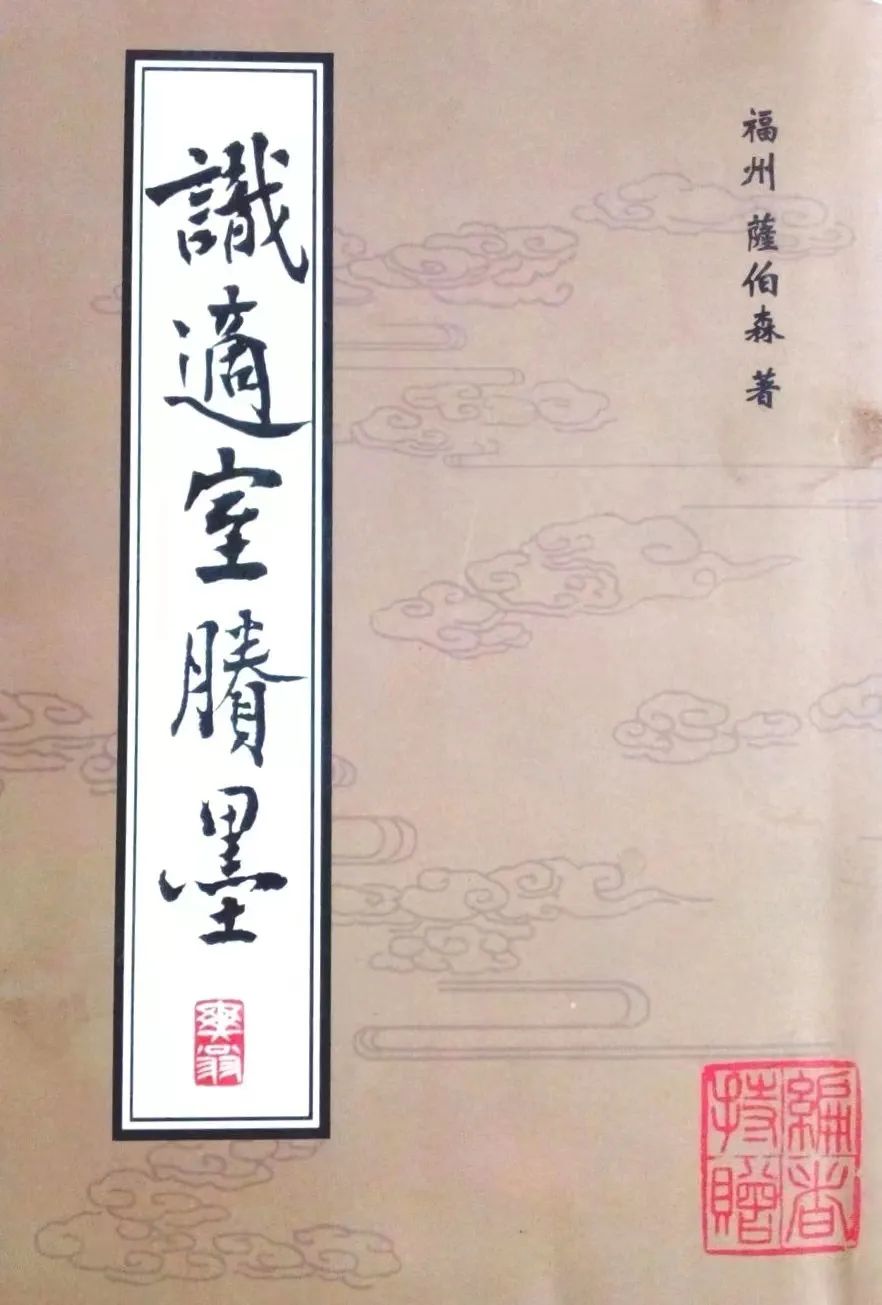 福州 薩伯森 著
識適室賸墨
編者
持贈